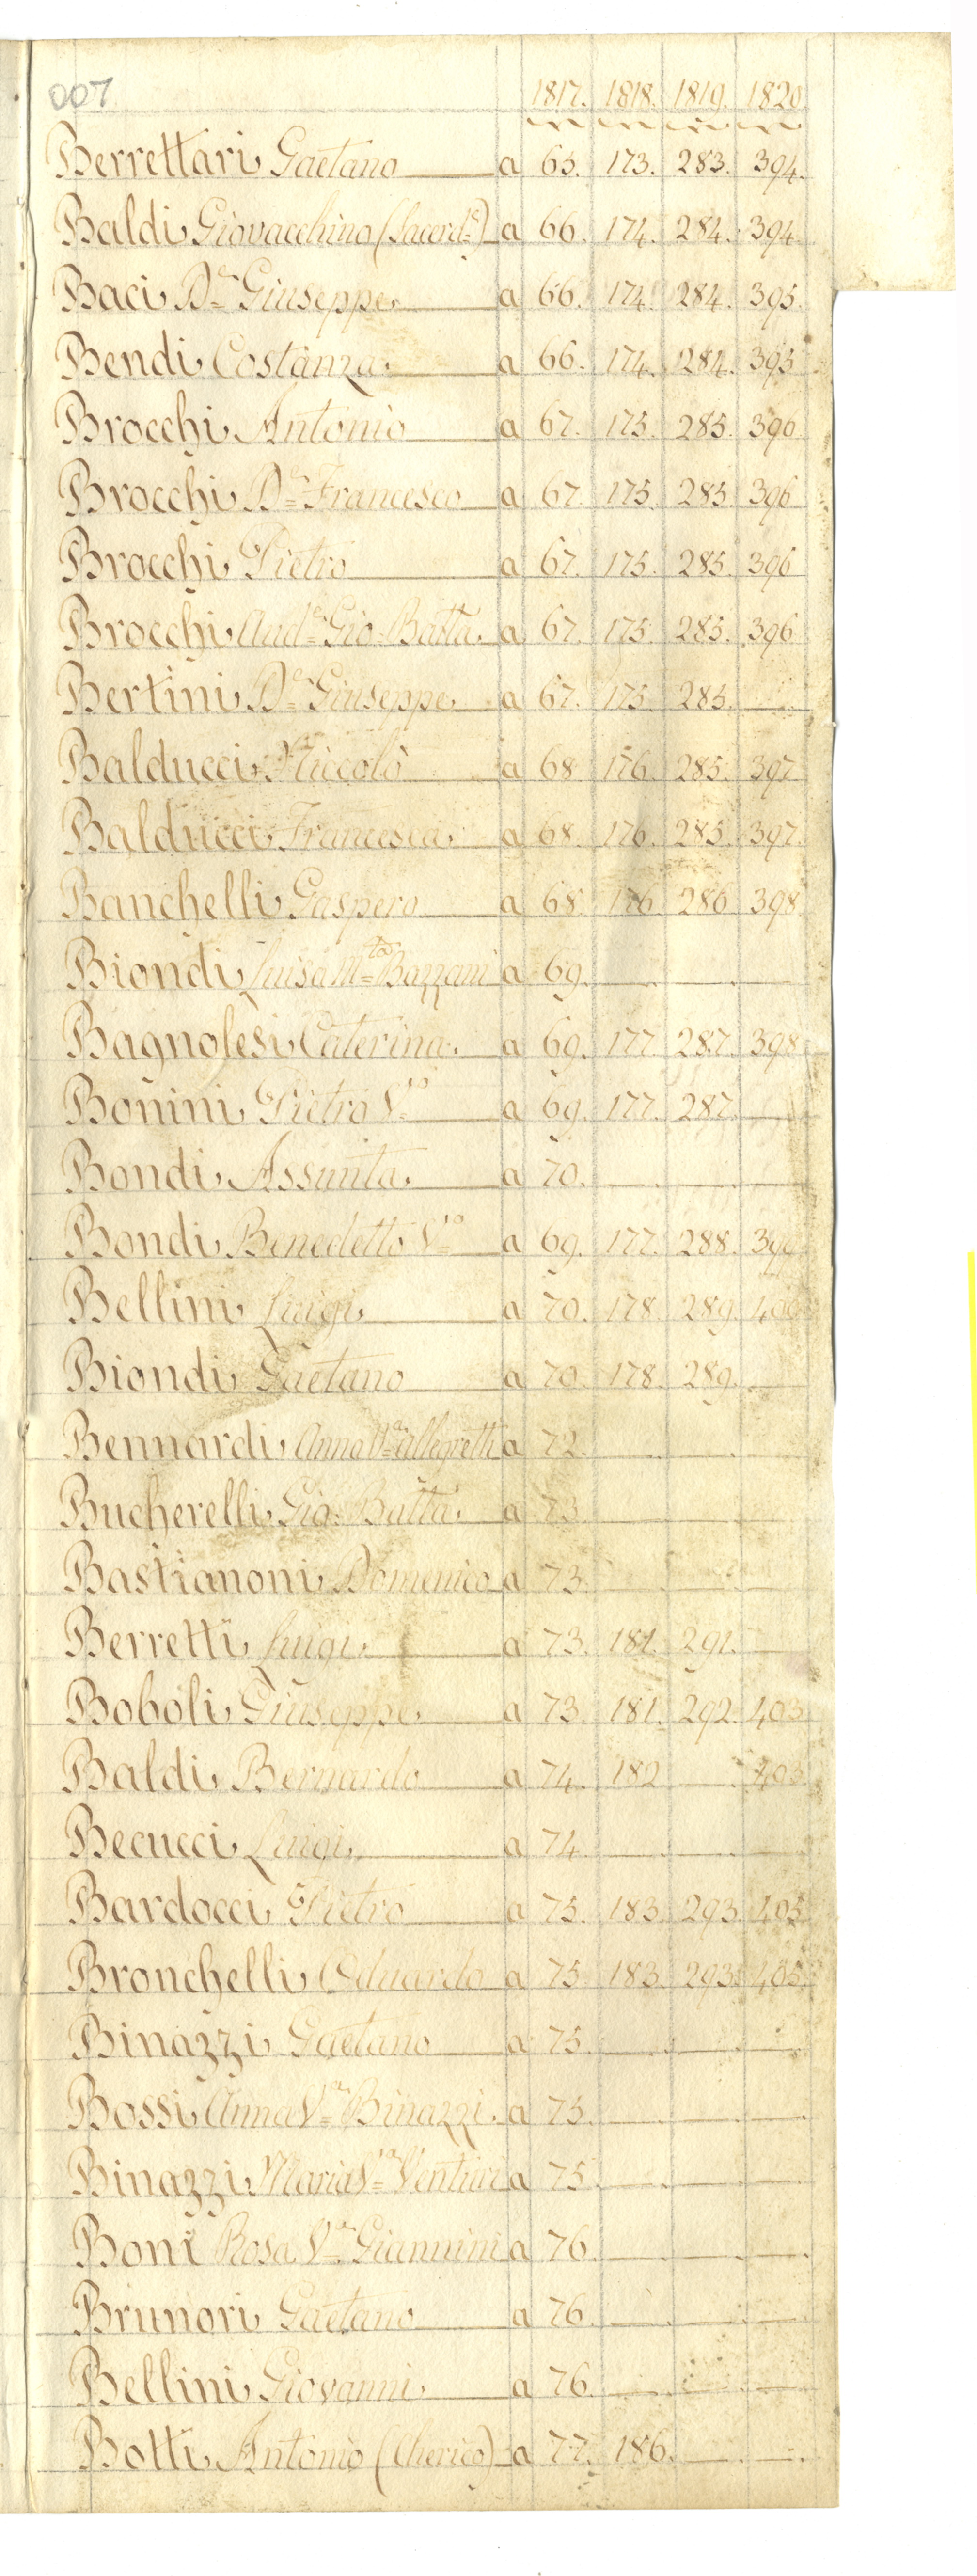 007
1817. 1818. 1819. 1820
Berrettari Gaetano a 65. 173. 283. 394.
Baldi Giovacchino (Sacerd.e) a 66. 174. 284. 394.
Baci D.r Giuseppe a 66. 174. 284. 395.
Bendi Costanza a 66. 174. 284. 395
Brocchi Antonio a 67. 175. 285. 396
Brocchi D.r Francesco a 67. 175. 285. 396
Brocchi Pietro a 67. 175. 285. 396
Brocchi Aud.e Gio. Batta a 67. 175. 285. 396
Bertini D.r Giuseppe a 67. 175. 285.
Balducci Niccolò a 68. 176. 285. 397
Balducci Francesca a 68. 176. 285. 397.
Banchelli Gaspero a 68. 176. 286. 398
Biondi Luisa M.ta Bazzani a 69.
Bagnolesi Caterina a 69. 177. 287. 398
Bonini Pietro V.o a 69. 177. 287.
Bondi Assunta a 70.
Bondi Benedetto V.o a 69. 177. 288.
Bellini Luigi a 70. 178. 289. 400
Biondi Gaetano a 70. 178. 289.
Bennardi Anna V.a Allegretti a 72.
Bucherelli Gio. Batta a 73.
Bastianoni Domenico a 73.
Berretti Luigi a 73. 181. 291.
Boboli Giuseppe a 73. 181. 292. 403
Baldi Bernardo a 74. 182 403
Becucci Luigi a 74
Bardocci Pietro a 75. 183. 293. 405
Bronchelli Eduardo a 75. 183. 293. 405.
Binazzi Gaetano a 75.
Bossi Anna V.a Binazzi a 75.
Binazzi Maria V.a Venturi a 75.
Boni Rosa V.a Giannini a 76.
Brunori Gaetano a 76.
Bellini Giovanni a 76.
Botti Antonio (Cherico) a 77. 186.